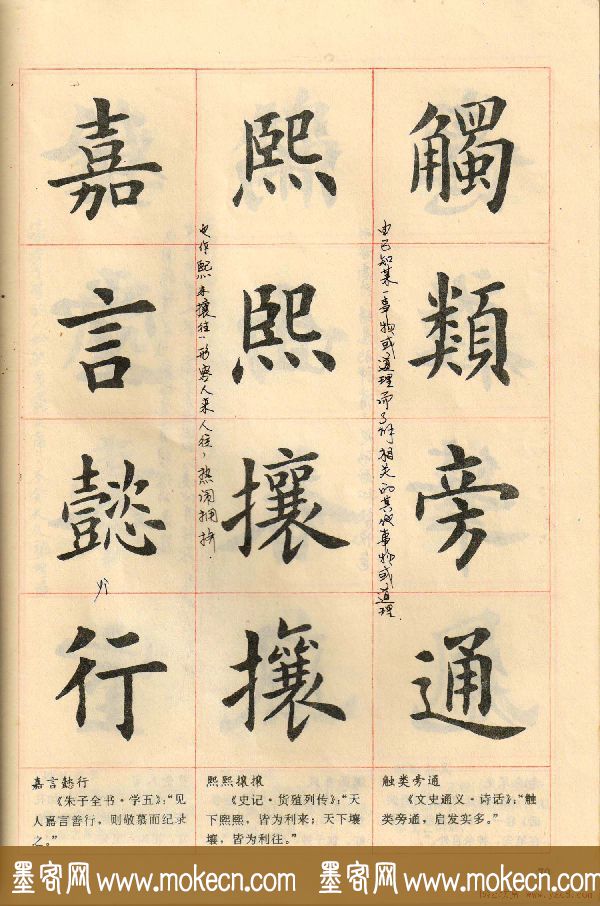 觸類旁通
由已知某一事物或道理而了解相关的其他事物或道理.
熙熙攘攘
也作熙来攘往，形容人来人往，热闹拥挤.
嘉言懿行
yì
触类旁通
《文史通义·诗话》：“触
类旁通，启发实多。”
熙熙攘攘
《史记·货殖列传》：“天
下熙熙，皆为利来；天下壤
壤，皆为利往。”
嘉言懿行
《朱子全书·学五》：“见
人嘉言善行，则敬慕而纪录
之。”
墨客网 www.mokecn.com 墨客网 www.mokecn.com